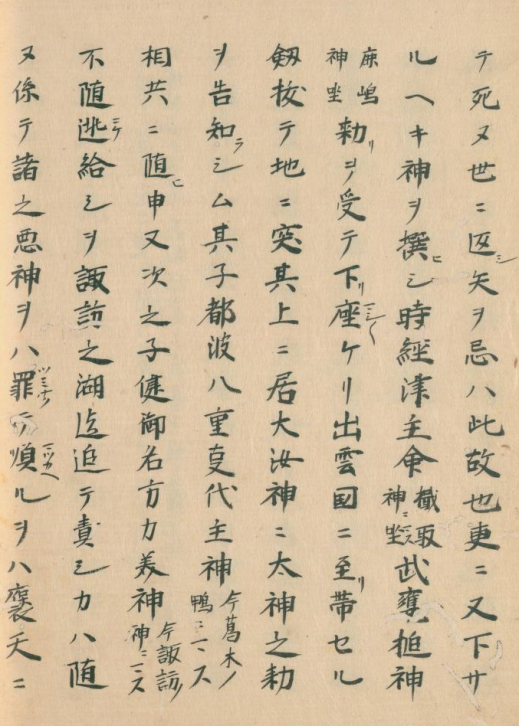 テ死ヌ世ニ返シ矢ヲ忌ハ此故也更ニ又下サ
ルヘキ神ヲ撰ニシ時經津主命檝取神ニ坐ス武甕槌神
鹿嶋神坐勅リヲ受テ下リ座ケリ出雲国ニ至リ帯セル
劔抜テ地ニ突其上ニ居大汝神ニ太神之勅
ヲ告知ラシム其子都波八重事代主神今葛木ノ鴨ニマス
相共ニ随ニ申又次之子健御名方力美神今諏訪ノ神ニマス
不随逃ニケ給シヲ諏訪之湖迄追テ責シカハ随
ヌ係テ諸之悪神ヲハ罪順ルヲハ褒天ニ